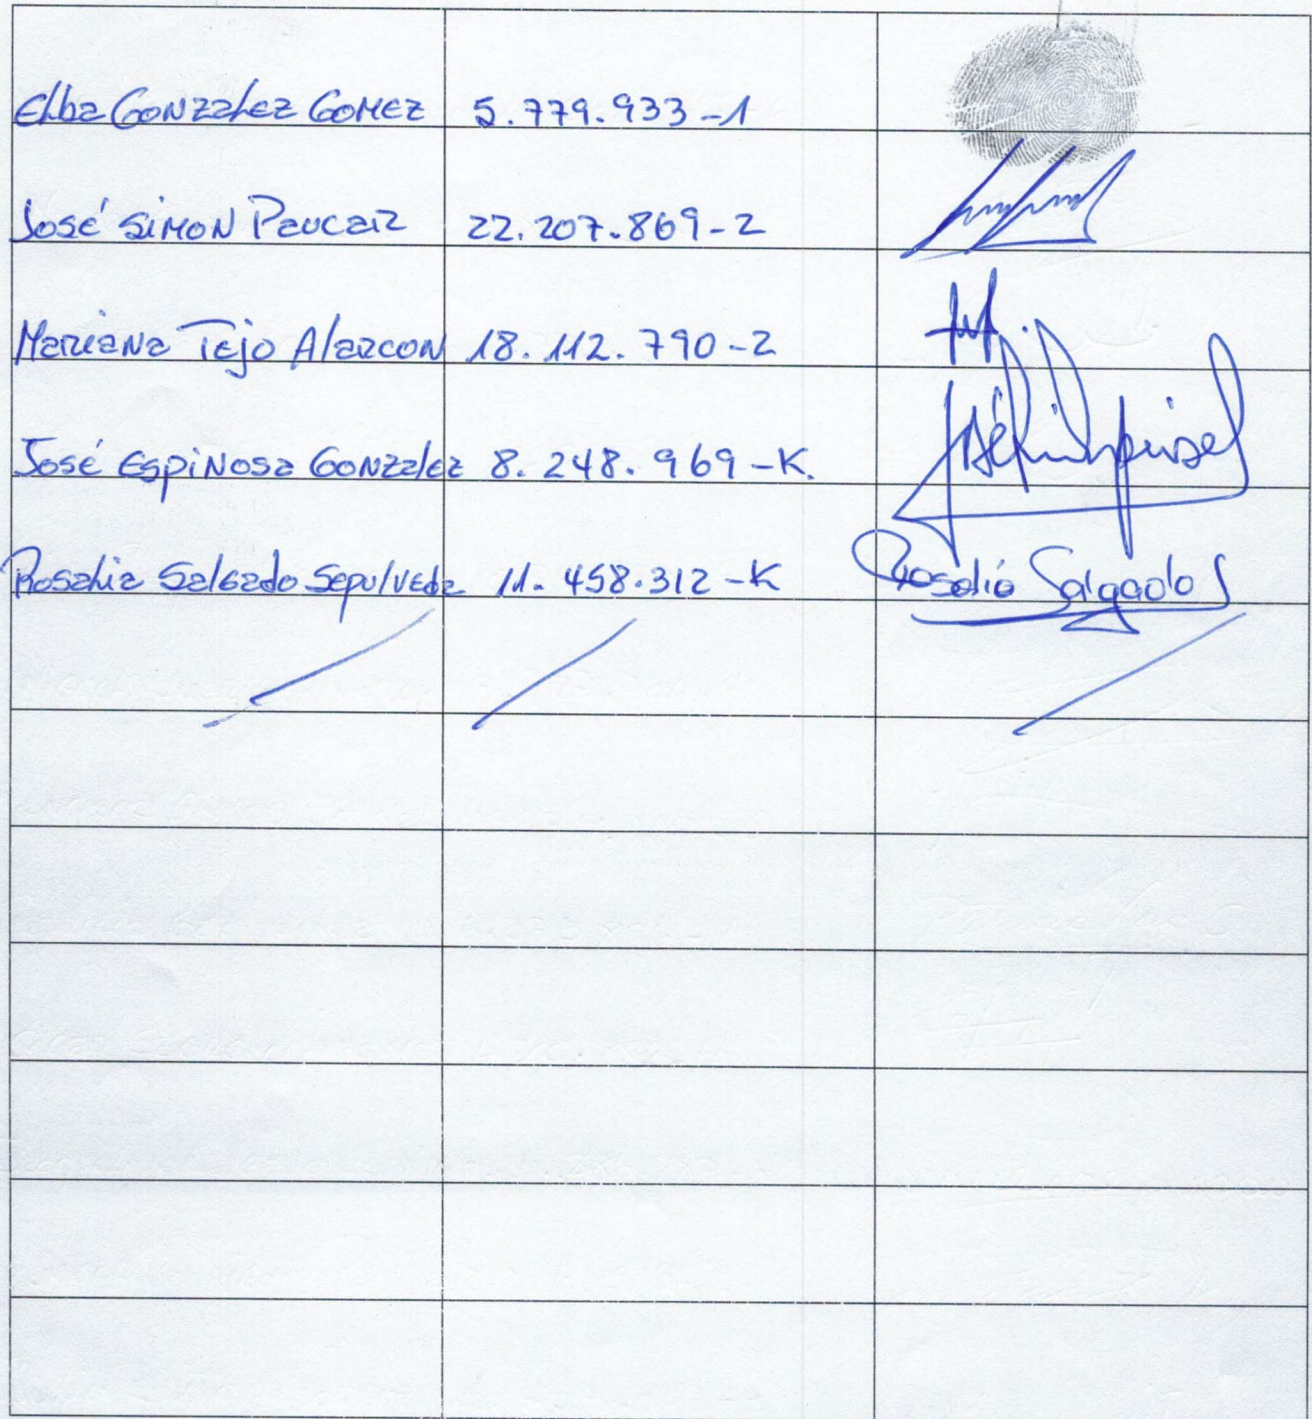 Elba Gonzalez Gomez 5.779.933-1
José Simon Paucar 22.207.869-2
Mariana Tejo Alarcon 18.112.790-2
José Espinosa Gonzalez 8.248.969-K.
Rosalia Salgado Sepulveda 11.458.312-K Rosalía Salgado S